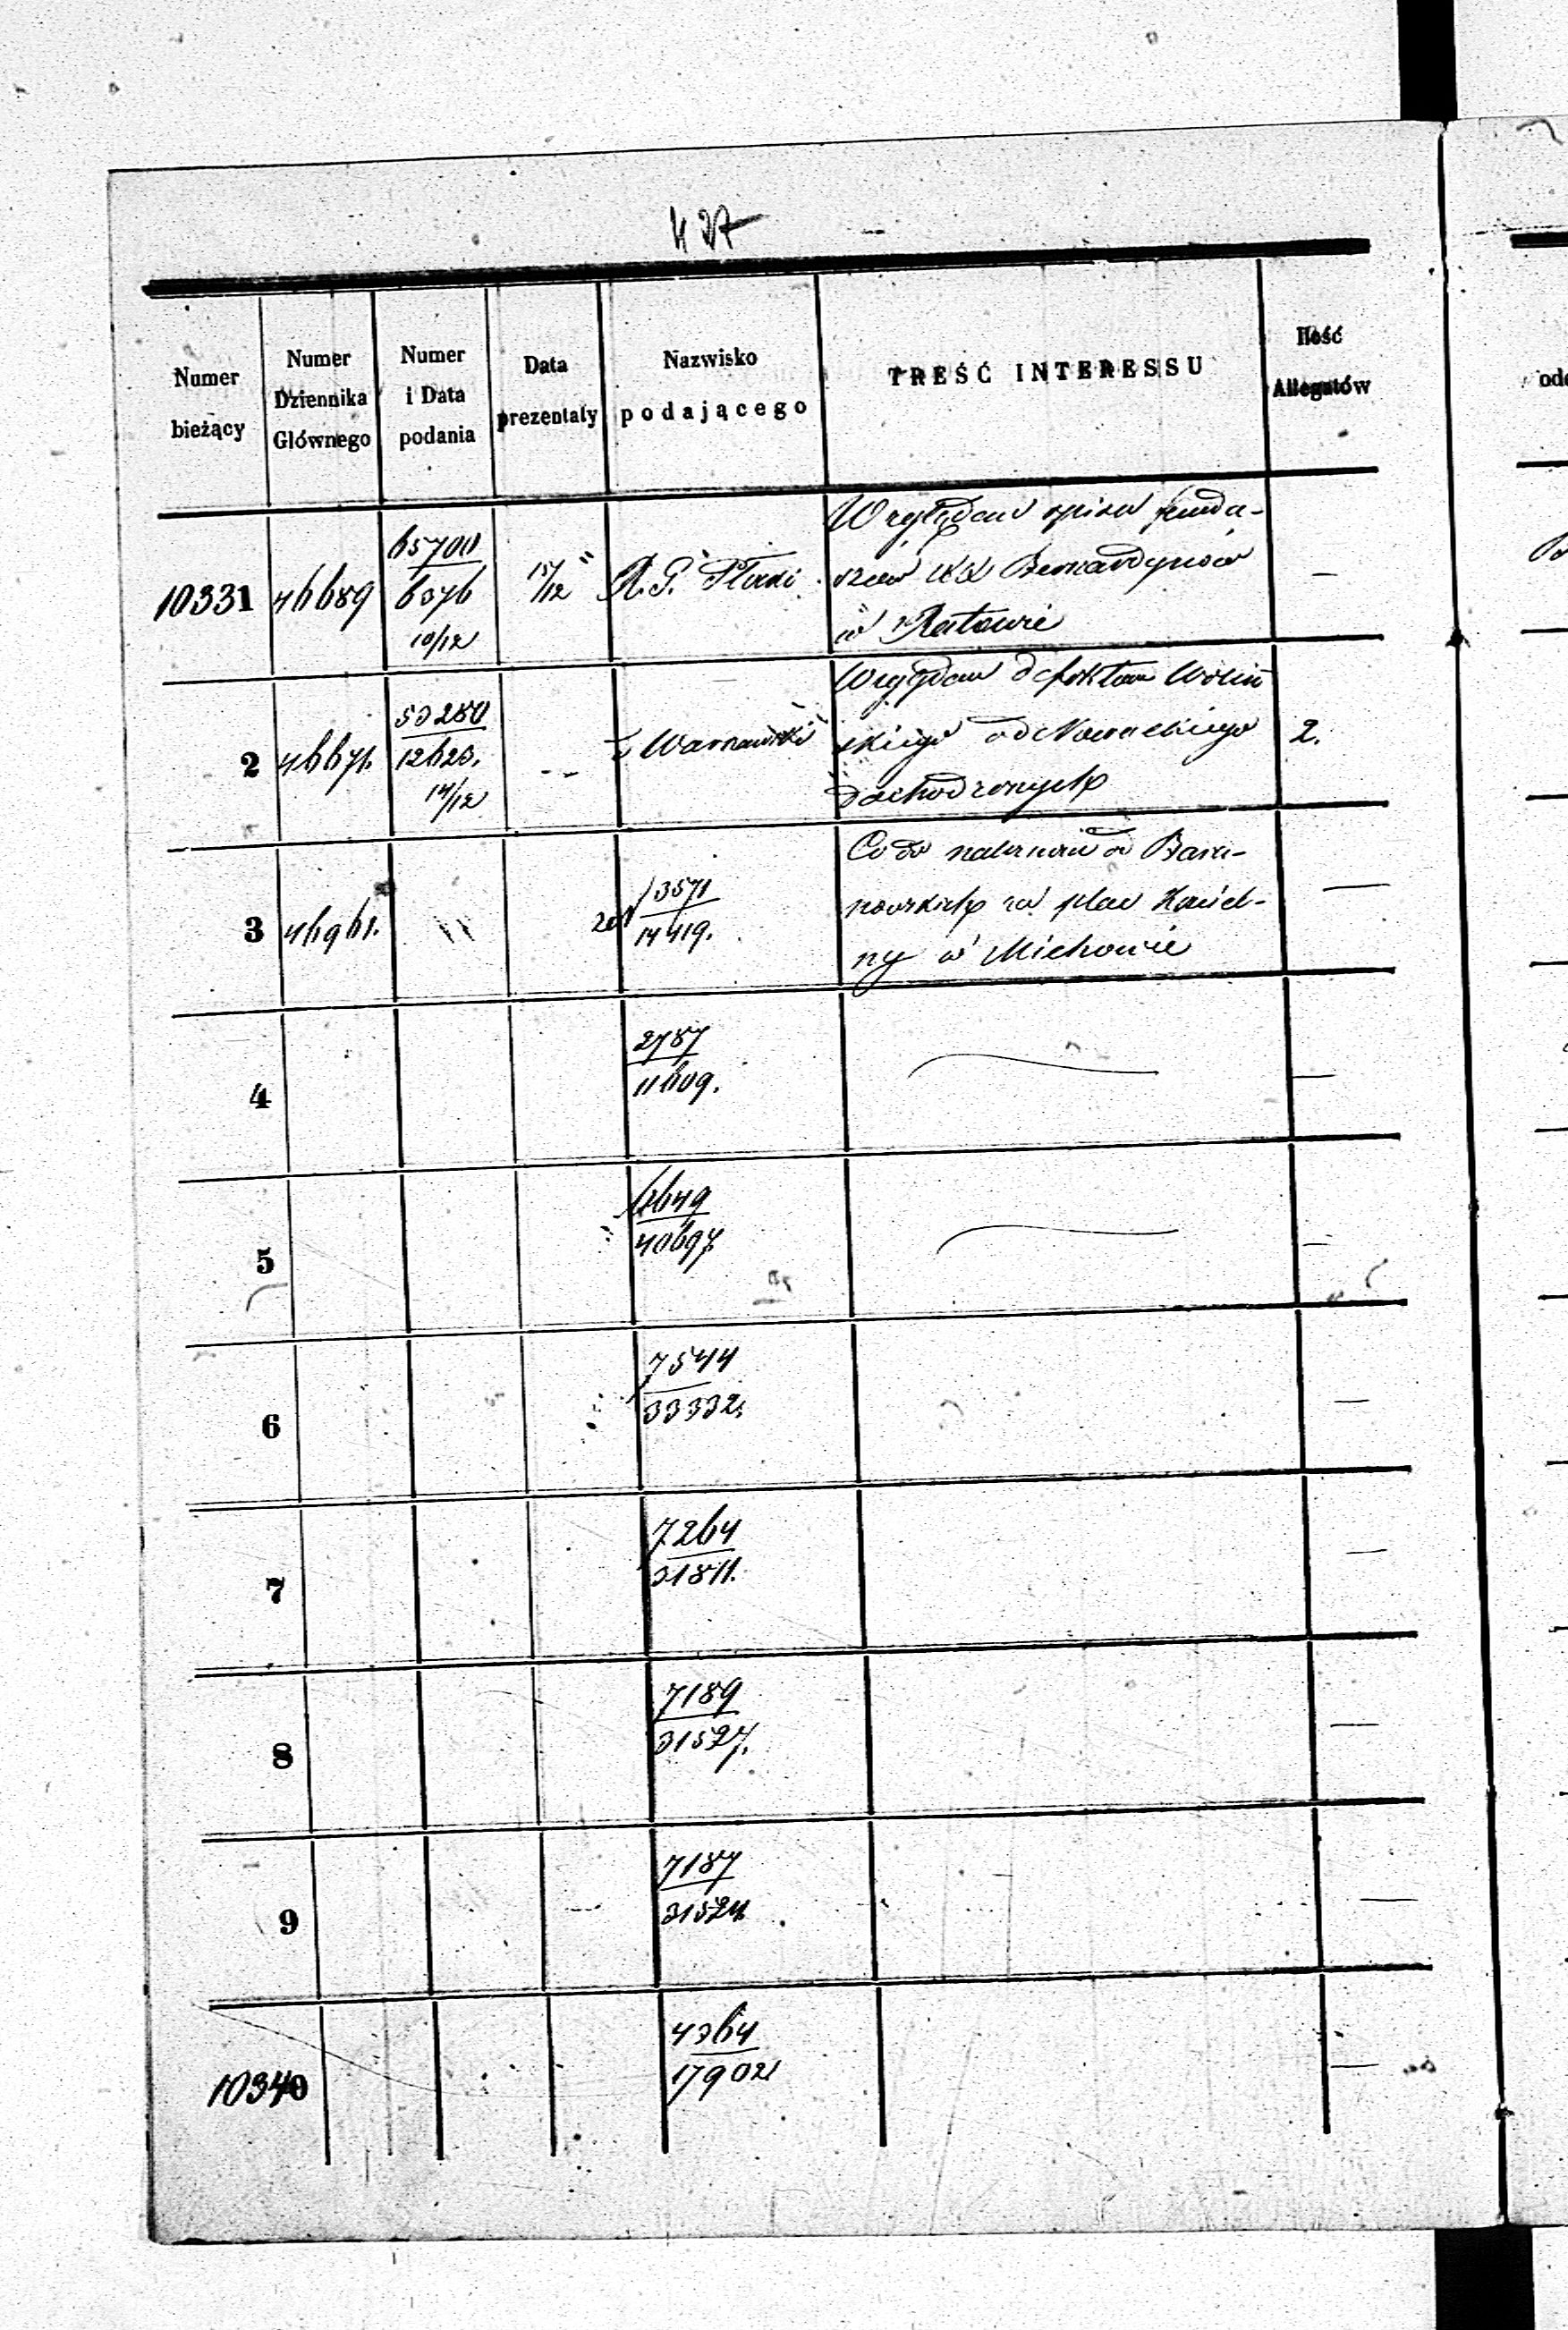 437
Numer bieżący
Numer Dziennika Głównego
Numer i Data podania
Data prezentaty
Nazwisko podającego
TREŚĆ INTERESSU
Ilość Allegatów
10331
46689
65700
6376
10/12
15/12
R. G. Płocki
Względem spisu fundu-
szów XX Bernardynów
w Ratowie
—
2
46671.
53280
12623.
14/12
Warszawski
Względem defektów Woliń
skiego od Nowackiego
dochodzonych
2.
3
46961.
"
3571
14419.
Co do należności Bara-
nowskich za plac Kościel-
ny w Michowie
—
4
2787
11609.
—
5
6649
40697.
—
6
7544
33332.
—
7
7264
31811.
—
8
7189
31527.
—
9
7187
31524
—
10340
4364
17902
—